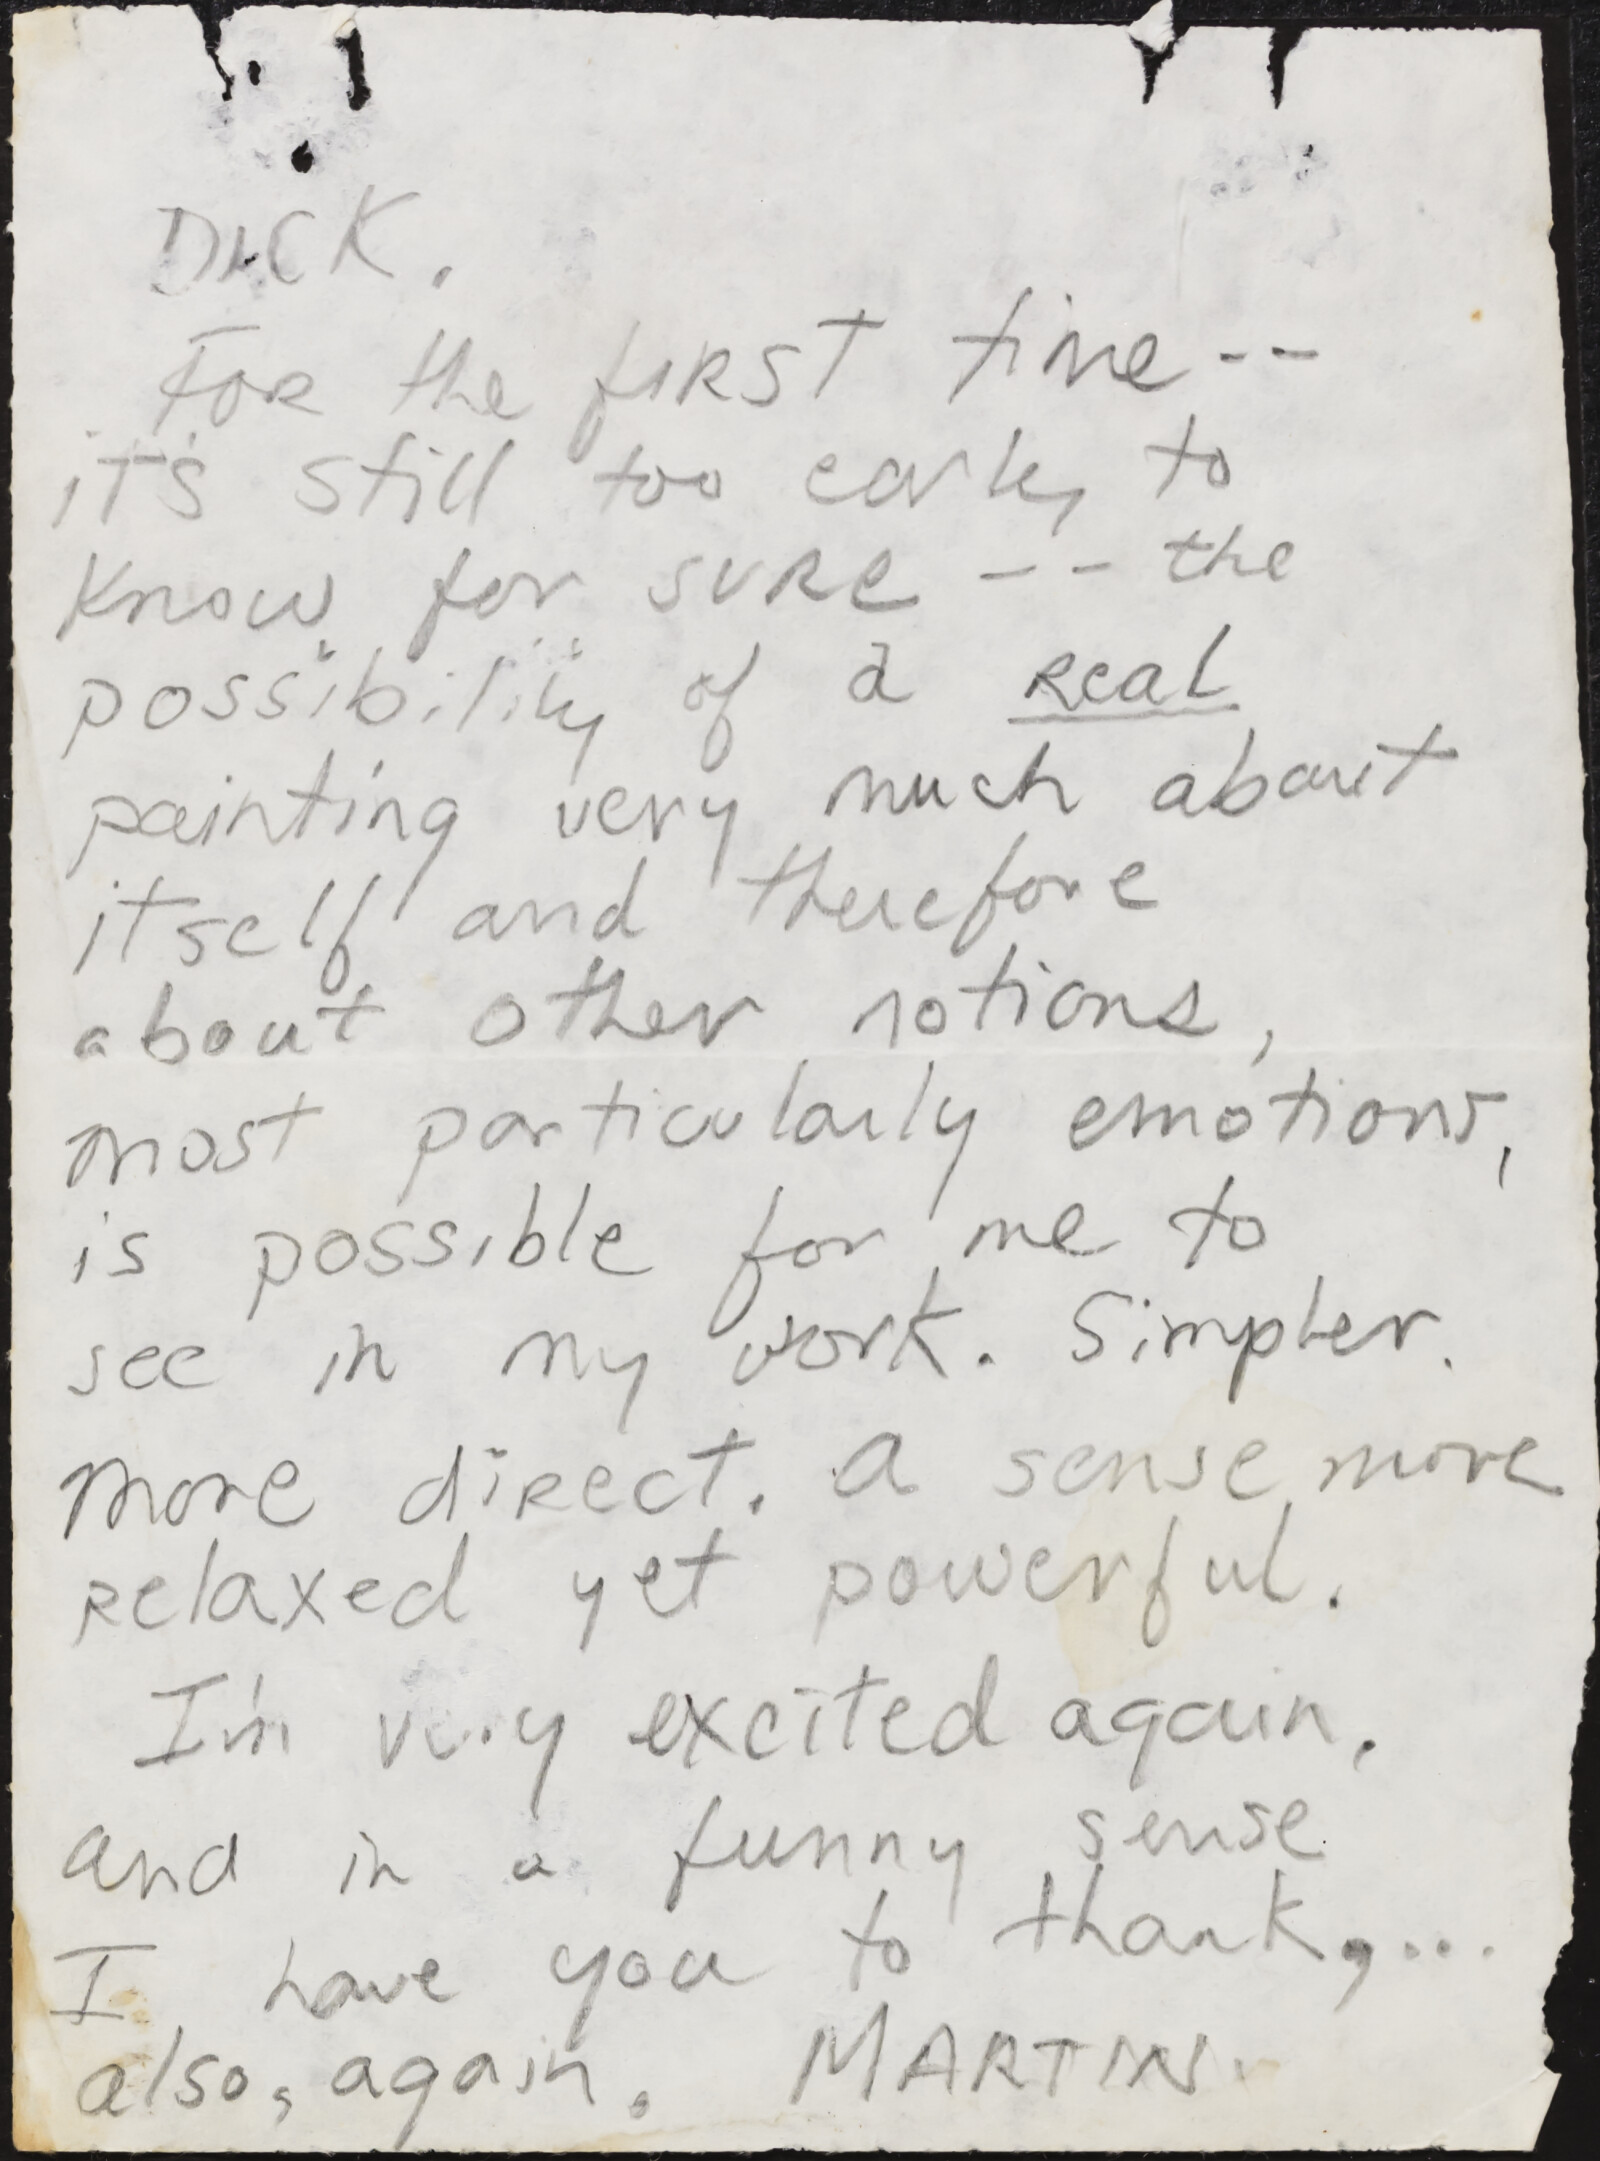 DICK.
FOR the fiRST time --
iT'S still too early to
know for SURe -- the
possibility of a Real
painting very much about
itself and therefore
about other notions,
most particularly emotions,
is possible for me to
see in my work. Simpler.
More diRect. A sense more
Relaxed yet powerful.
I'm very excited again,
and in a funny sense
I have you to thank,...
also, again. MARTIN.